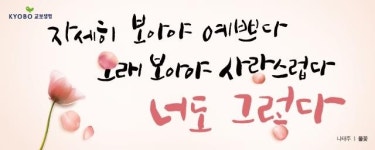 KYOBO 교보생명
자세히 보아야 예쁘다
오래 보아야 사랑스럽다
너도 그렇다
나태주 | 풀꽃